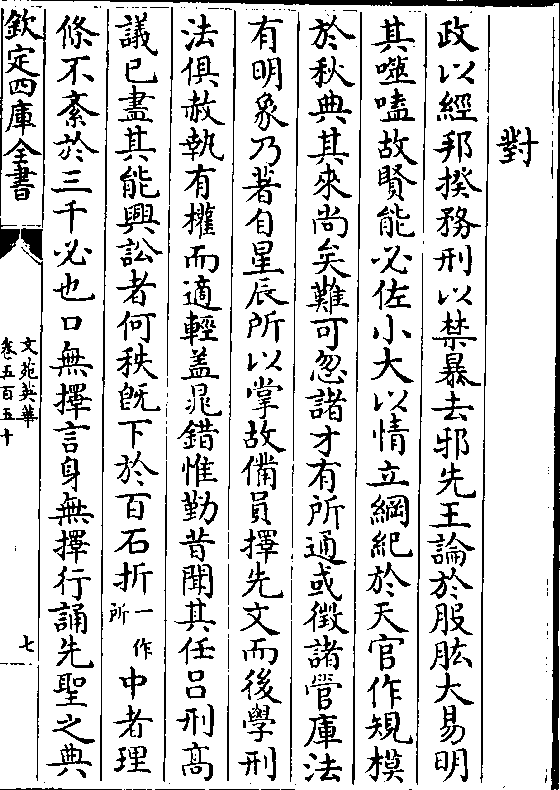 對
政以經邦揆務刑以禁暴去邪先王論於服肱大易明
其噬嗑故賢能必佐小大以情立綱紀於天官作規模
於秋典其來尚矣難可忽諸才有所通或徵諸管庫法
有明象乃著自星辰所以掌故備員擇先文而後學刑
法俱赦執有權而適輕盖晁錯惟勤昔聞其任吕刑髙
議已盡其能興訟者何秩旣下於百石折一作所中者理
條不紊於三千必也口無擇言身無擇行誦先聖之典
欽定四庫全書
文苑英華
卷五百五十
七